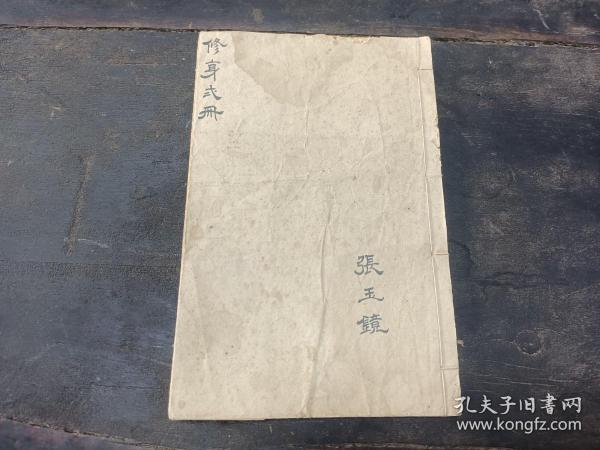 修身弍冊
張玉鏡
孔夫子旧書网
www.kongfz.com